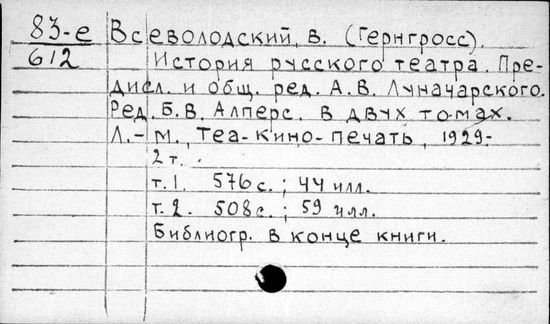 83-е Всеволодский, В. (Гернгросс).
612 История русского театра. Пре-
дисл. и общ. ред. А.В. Луначарского.
Ред. Б.В. Алперс. в двух томах.
Л.-М., Теа-кино-печать, 1929.-
2 т.
т. 1. 576 с.; 44 илл.
т. 2. 508 с.; 59 илл.
Библиогр. в конце книги.